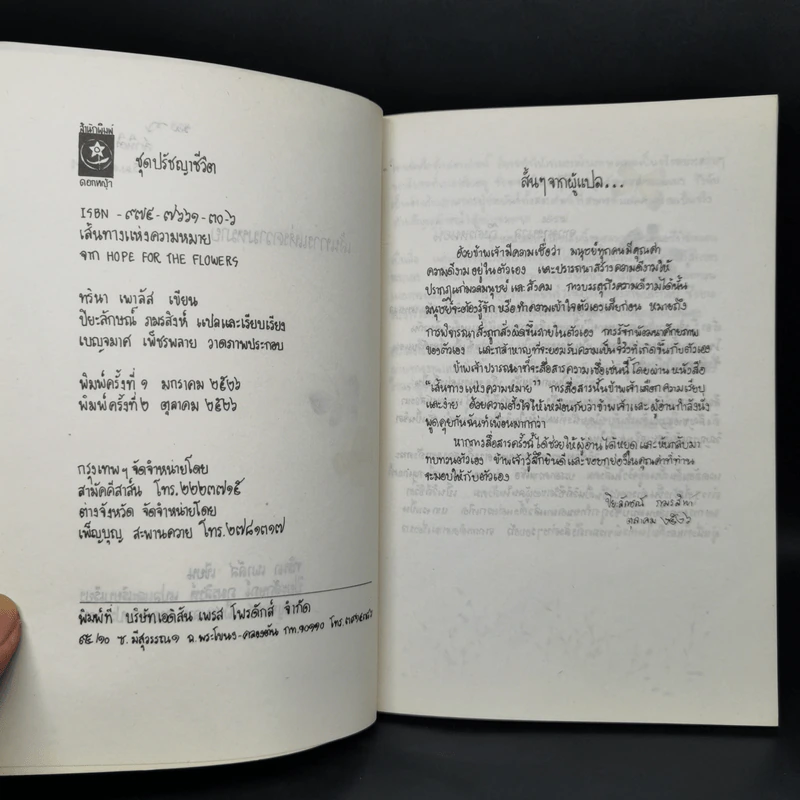 สำนักพิมพ์
ดอกหญ้า
ชุดปรัชญาชีวิต
ISBN -๙๗๕-๗๖๖๑-๓๐-๖
เส้นทางแห่งความหมาย
จาก HOPE FOR THE FLOWERS
ทรินา เพาลัส เขียน
ปิยะลักษณ์ ภมรสิงห์ แปลและเรียบเรียง
เบญจมาศ เพ็ชรพลาย วาดภาพประกอบ
พิมพ์ครั้งที่ ๑ มกราคม ๒๕๒๖
พิมพ์ครั้งที่ ๒ ตุลาคม ๒๕๒๖
กรุงเทพฯ จัดจำหน่ายโดย
สามัคคีสาส์น โทร. ๒๒๒๓๗๑๕
ต่างจังหวัด จัดจำหน่ายโดย
เพ็ญบุญ สะพานควาย โทร. ๒๗๘๑๓๑๗
พิมพ์ที่ บริษัทเอดิสัน เพรส โพรดักส์ จำกัด
๙๕/๒๐ ซ. มีสุวรรณ ๑ ถ. พระโขนง-คลองตัน กท. ๑๐๑๑๐ โทร.
สั้นๆ จากผู้แปล...
ด้วยข้าพเจ้ามีความเชื่อว่า มนุษย์ทุกคนมีคุณค่า
ความดีงามอยู่ในตัวเอง และปรารถนาสร้างความดีงามให้
ปรากฏแก่มวลมนุษย์และสังคม การบรรลุถึงความดีงามได้นั้น
มนุษย์จะต้องรู้จัก หรือทำความเข้าใจตัวเองเสียก่อน หมายถึง
การพิจารณาสิ่งถูกสิ่งผิดขึ้นภายในตัวเอง การรู้จักพัฒนาศักยภาพ
ของตัวเอง และกล้าหาญที่จะยอมรับความเป็นจริงที่เกิดขึ้นกับตัวเอง
ข้าพเจ้าปรารถนาที่จะสื่อสารความเชื่อเช่นนี้โดยผ่านหนังสือ
"เส้นทางแห่งความหมาย" การสื่อสารนั้นข้าพเจ้าเลือกความเรียบ
และง่าย ด้วยความตั้งใจให้เหมือนกับว่าข้าพเจ้าและผู้อ่านกำลังนั่ง
พูดคุยกันฉันท์เพื่อนมากกว่า
หากการสื่อสารครั้งนี้ได้ช่วยให้ผู้อ่านได้หยุดและหันกลับมา
ทบทวนตัวเอง ข้าพเจ้ารู้สึกยินดีและขอยกย่องในคุณค่าที่ท่าน
จะมอบให้กับตัวเอง
ปิยะลักษณ์ ภมรสิงห์
ตุลาคม ๒๕๒๖